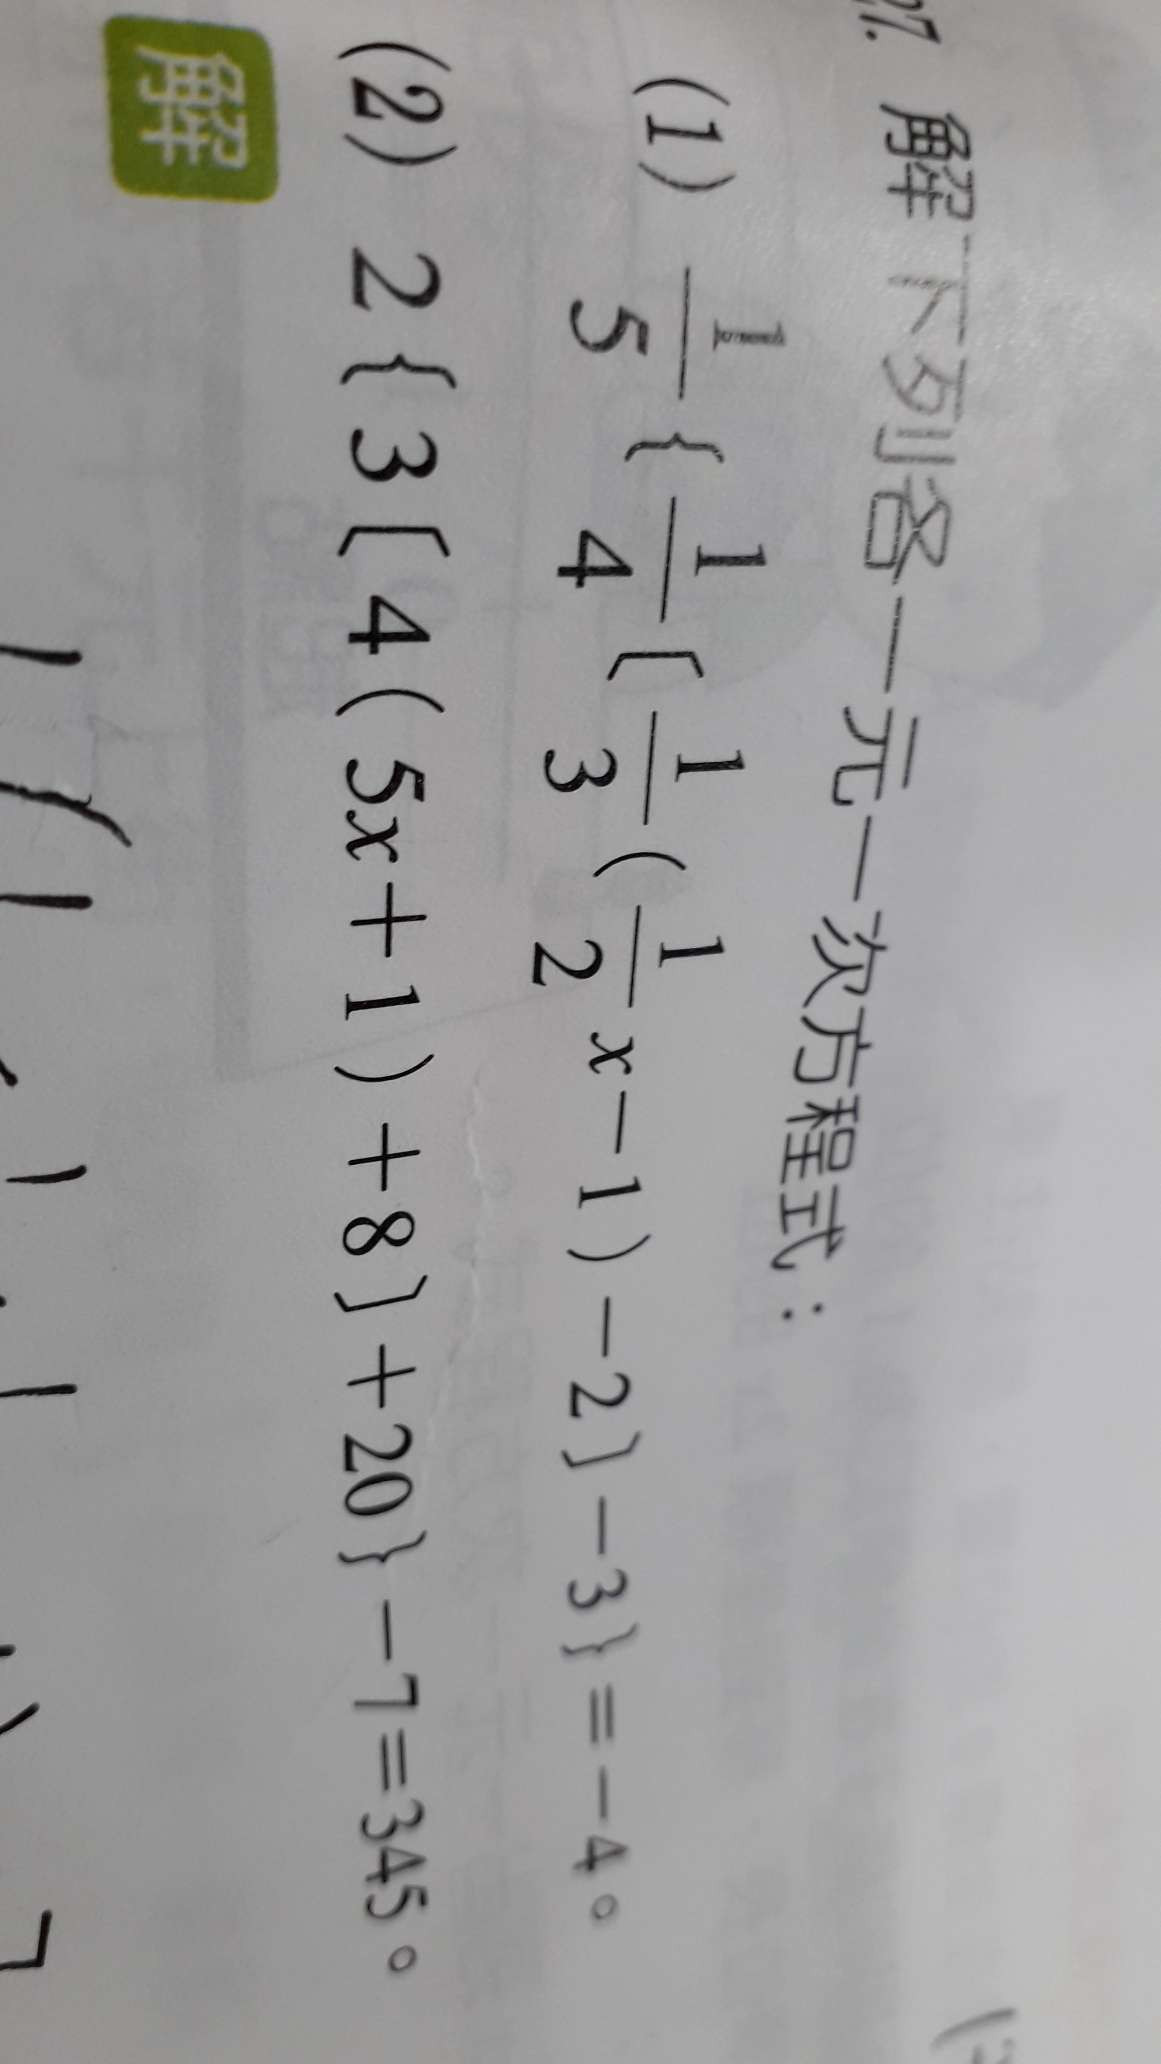 27. 解下列各一元一次方程式：
(1) 1/5{1/4〔1/3(1/2x－1)－2〕－3}＝－4。
(2) 2{3〔4(5x＋1)＋8〕＋20}－7＝345。
解